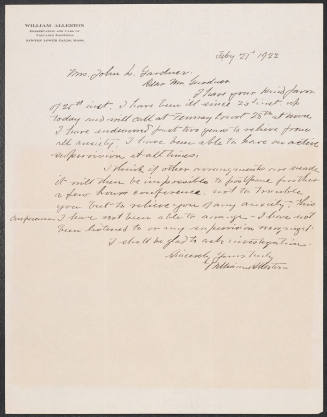 WILLIAM ALLERTON
PRESERVATION AND CARE OF
VALUABLE PAINTINGS
NEWTON LOWER FALLS, MASS.
Feby 27th 1922
Mrs. John L. Gardner.
Dear Mrs Gardner
I have your kind favor
of 25th inst. I have been ill since 23d inst. up
today and will call at Fenway Court 28th at noon
I have endeavored past two years to relieve you from
all anxiety. I have been able to have an active
supervision at all times.
I think if other arrangements are made
it will then be impossible to postpone further
a few hours conference not to trouble
you but to relieve you of any anxiety. This
conference I have not been able to arrange. I have not
been listened to or my supervision recognized.
I shall be glad to ask investigation.
Sincerely Yours truly
William Allerton